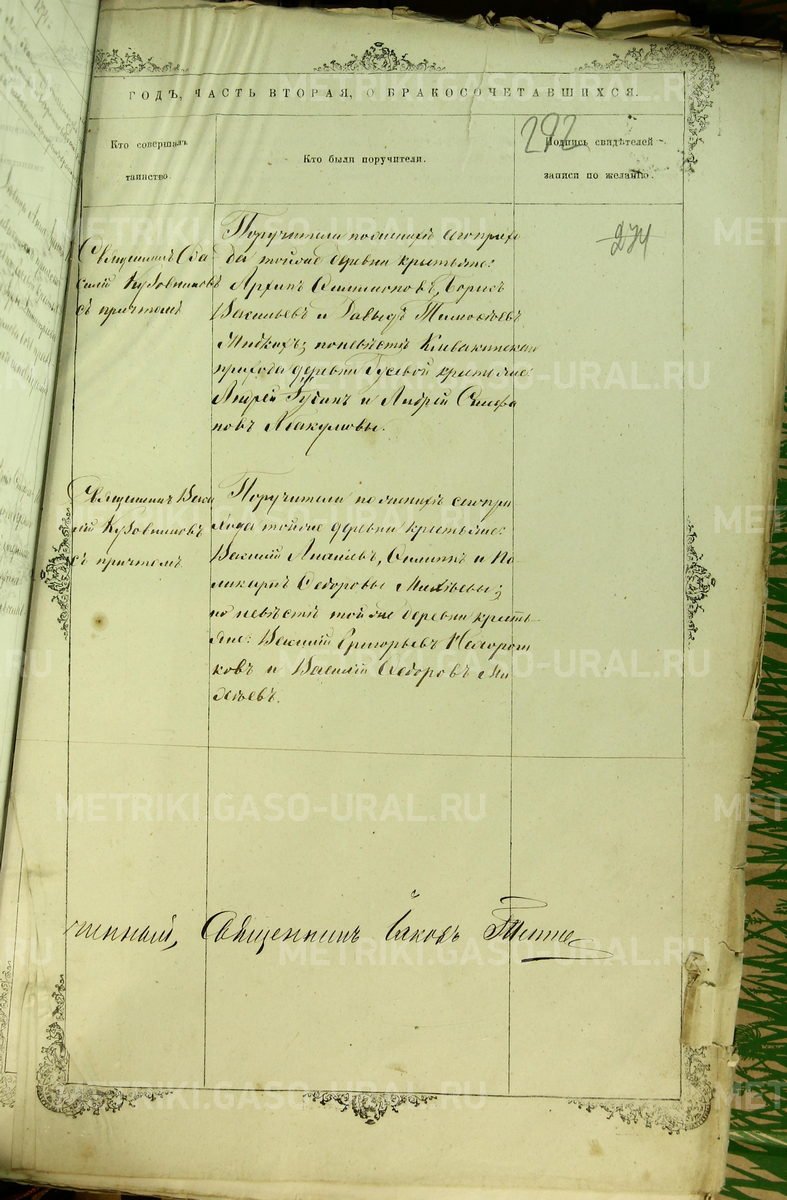 ГОДЪ, ЧАСТЬ ВТОРАЯ, О БРАКОСОЧЕТАВШИХСЯ.
Кто совершалъ
таинство.
Кто были поручители.
292
Подпись свидѣтелей
записи по желанію.
274
Священникъ Ва
силій Кузовниковъ
съ причтомъ
Поручители по женихѣ сего прихо
да тойже деревни крестьяне:
Архипъ Борисъ
Васильевъ и Давыдъ Тимоѳеевъ
по невѣстѣ
прихода деревни Гусевой крестьяне:
Андрей и Андрей Стефа
новъ Абакумовы.
Священникъ Васи
лій Кузовниковъ
съ причтомъ
Поручители по женихѣ сего при
хода тойже деревни крестьяне:
Василій Филиппъ и По
ликарпъ Ѳедоровы Михѣевы;
по невѣстѣ тойже деревни кресть
яне: Василій Григорьевъ
ковъ и Василій Ѳедоровъ Ми
хѣевъ.
Священникъ Іаковъ
METRIKI.GASO-URAL.RU